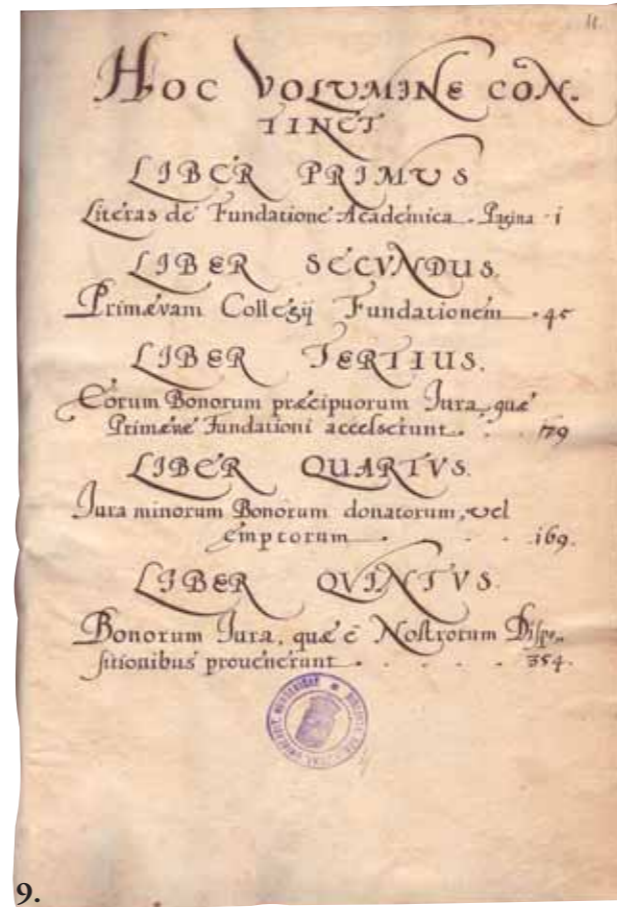 II.
HOC VOLVMINE CON.
TINET
LIBER PRIMUS
Literas de Fundatione Academica. Pagina. i
LIBER SECVNDUS.
Primævam Collegij Fundationem . 45
LIBER TERTIUS.
Eorum Bonorum præcipuorum Jura, quæ
Primævæ Fundationi accesserunt . . . 179
LIBER QUARTVS.
Jura minorum Bonorum donatorum, vel
emptorum . . . . 169.
LIBER QVINTVS.
Bonorum Jura, quæ é Nostrorum Dispo-
sitionibus provenerunt . . . . . 354.
9.